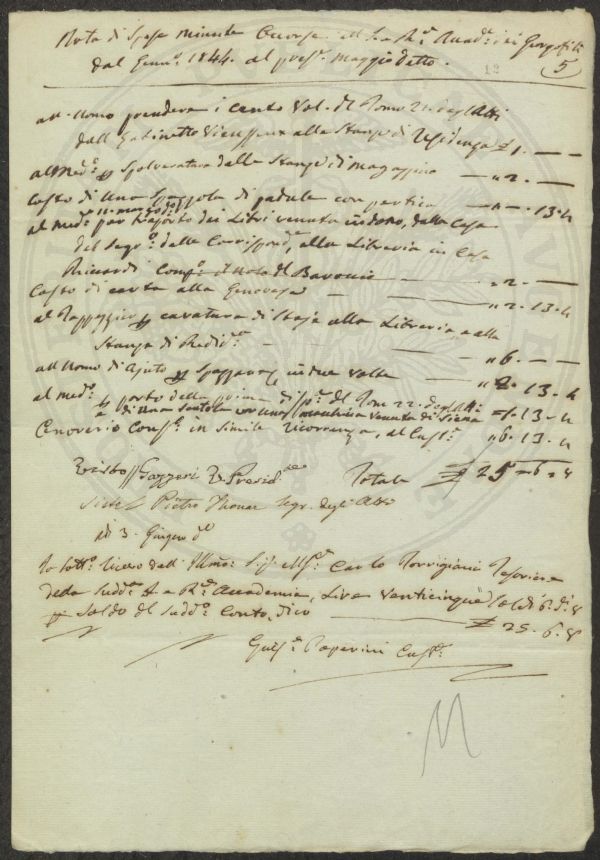 Nota di Spese minute Occorse all' I. e R. Accad.a dei Georgofili
dal Genn.o 1844. al pres.e Maggio detto.
12
5
all' Uomo prendere i cento Vol. del Tomo 21. degl'Atti
dall Gabinetto Vieusseux alle Stanze di Residenza £ 1. —
al Med.o p Spolveratura delle Stanze di magazzino — " 2. —
Costo di Una Spazzola di padule con pertica — " — . 13. 4
al med.o per trasporto dei Libri venuti in dono, dalla Casa
del Segr.o delle Corrispond.e, alla Libreria in Casa
Riccardi Comp.o il nolo del Baroccio — " 2. —
Costo di carta alla Genovese — " 2. 13. 4
al Tappezziere p cavatura di Stoje alla Libreria, e alla
Stanza di Resid.a — " 6. —
all Uomo di Ajuto p Spazzare in due volte — " 2. 13. 4
al med.o p porto della prima disp.a del Tom. 22. degl'Atti
e di Una Scatola con una macchina venuta di Siena — 1. 13. 4
Cenoverio Cons.o in Simile ricorrenza, al Cust.e " 6. 13. 4
Visto Gazzeri V. Presid.e Totale £ 25 - 6 - 8
Pietro Thouar Segr. degli Atti
li 3. Giugno d.o
Io Sott.o ricevo dall' Illmo. Sig. M.se Carlo Torrigiani Tesoriere
della Sudd.a I. e R. Accademia, Lire Venticinque Soldi 6. d. 8
p Saldo del Sudd.o Conto, dico — £ 25. 6. 8
Gius.e Paperini Cust.e
M